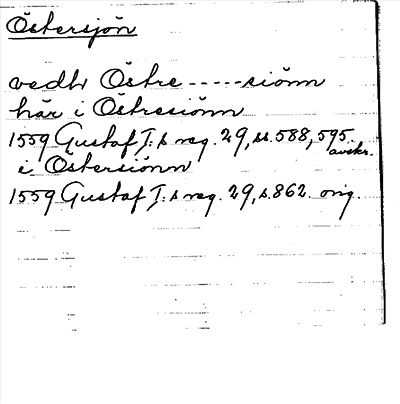 Östersjön
vedh Östre-----siönn
här i Östresiönn
1559 Gustaf I:s reg. 29, ss. 588, 595. avskr.
i Östersiönn
1559 Gustaf I:s reg. 29, s. 862. orig.